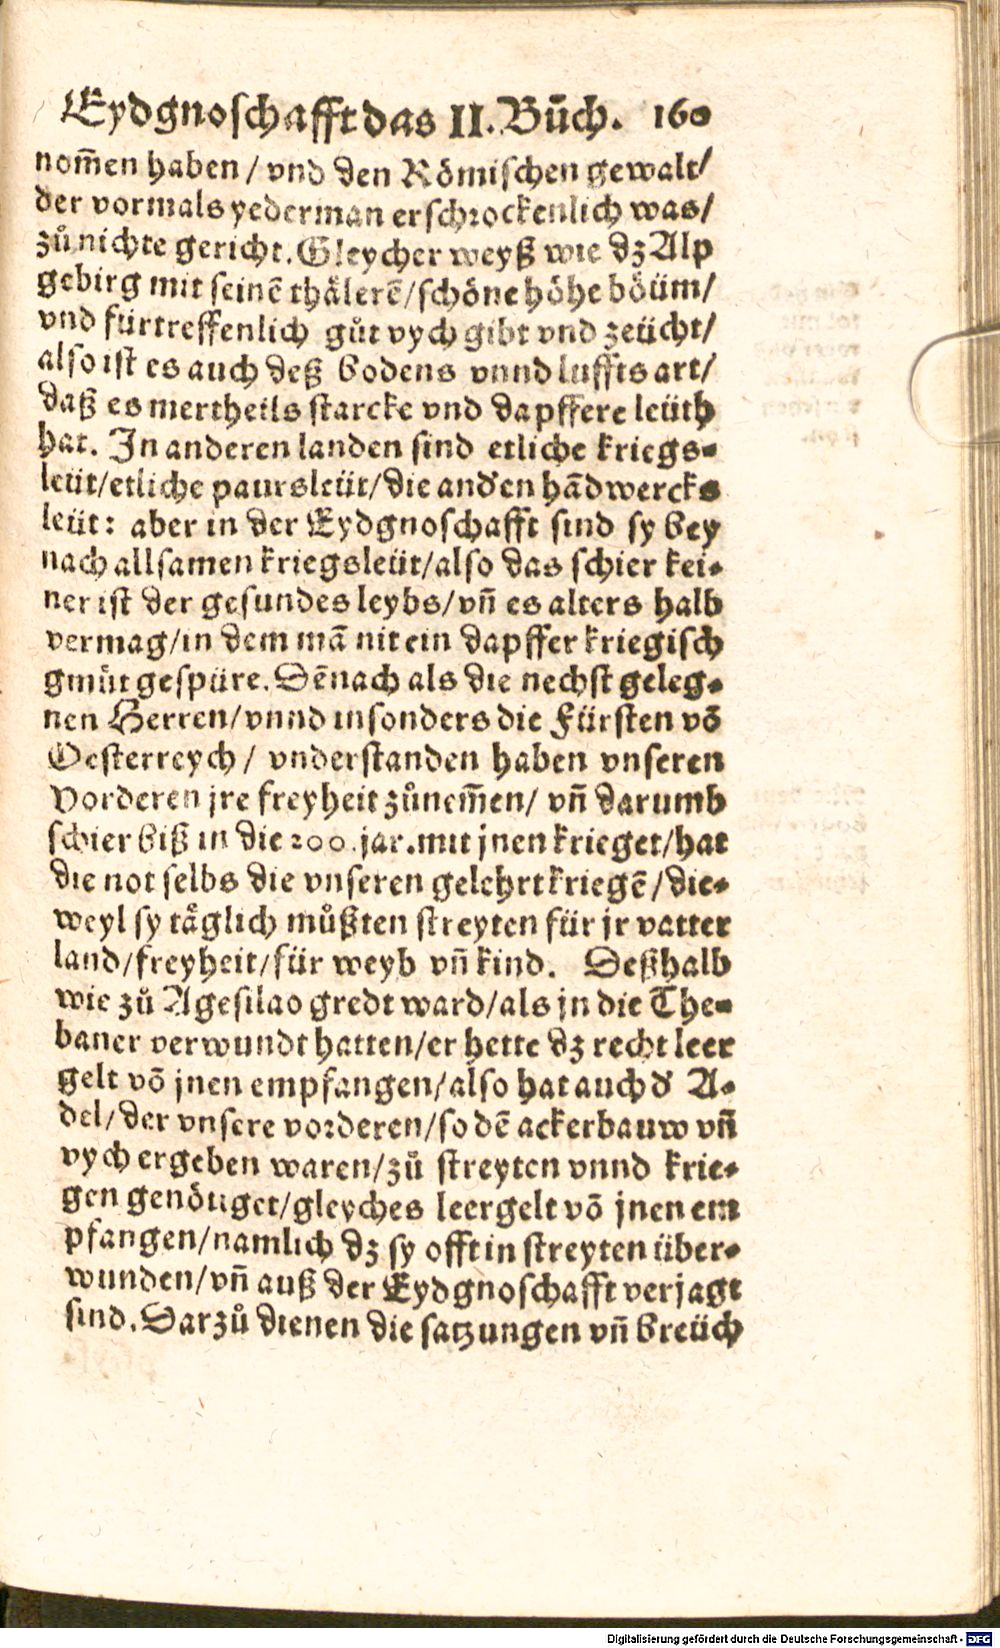 Eydgnoschafft das II. Bůch. 160
nom̃en haben / vnd den Römischen gewalt/
der vormals yederman erschrockenlich was/
zů nichte gericht. Gleycher weyß wie dz Alp
gebirg mit seinẽ thälerẽ/schöne höhe böüm/
vnd fürtreffenlich gůt vych gibt vnd zeücht/
also ist es auch deß bodens vnnd luffts art/
daß es mertheils starcke vnd dapffere leüth
hat. In anderen landen sind etliche kriegs-
leüt/etliche paursleüt/die and'en hãdwercks
leüt: aber in der Eydgnoschafft sind sy bey
nach allsamen kriegsleüt/also das schier kei-
ner ist der gesundes leybs/vñ es alters halb
vermag/in dem mã nit ein dapffer kriegisch
gmüt gespüre. Dẽnach als die nechst geleg-
nen Herren/vnnd insonders die Fürsten võ
Oesterreych/ vnderstanden haben vnseren
Vorderen jre freyheit zůnem̃en/ vñ darumb
schier biß in die 200. jar. mit jnen krieget/hat
die not selbs die vnseren gelehrt kriegẽ/die-
weyl sy täglich můßten streyten für jr vatter
land/freyheit/für weyb vñ kind. Deßhalb
wie zů Agesilao gredt ward/als jn die The-
baner verwundt hatten/er hette dz recht leer
gelt võ jnen empfangen/also hat auch d' A-
del/der vnsere vorderen/so dẽ ackerbauw vñ
vych ergeben waren/zů streyten vnnd krie-
gen genötiget/gleyches leergelt võ jnen em
pfangen/namlich dz sy offt in streyten über-
wunden/vñ auß der Eydgnoschafft verjagt
sind. Darzů dienen die satzungen vñ breüch
Digitalisierung gefördert durch die Deutsche Forschungsgemeinschaft - DFG